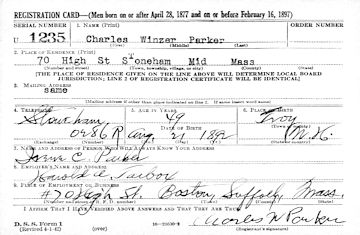 REGISTRATION CARD—(Men born on or after April 28, 1877 and on or before February 16, 1897)
SERIAL NUMBER 1. NAME (Print) ORDER NUMBER
U 1235 Charles Winzer Parker
(First) (Middle) (Last)
2. PLACE OF RESIDENCE (Print)
70 High St Stoneham Mid Mass
(Number and street) (Town, township, village, or city) (County) (State)
[THE PLACE OF RESIDENCE GIVEN ON THE LINE ABOVE WILL DETERMINE LOCAL BOARD
JURISDICTION; LINE 2 OF REGISTRATION CERTIFICATE WILL BE IDENTICAL]
3. MAILING ADDRESS
same
[Mailing address if other than place indicated on line 2. If same insert word same]
4. TELEPHONE 5. AGE IN YEARS 6. PLACE OF BIRTH
Stoneham 49 Troy
DATE OF BIRTH
0486 R Aug. 21 1892 N. H.
(Exchange) (Number) (Mo.) (Day) (Yr.) (State or country)
7. NAME AND ADDRESS OF PERSON WHO WILL ALWAYS KNOW YOUR ADDRESS
C. Parker
8. EMPLOYER'S NAME AND ADDRESS
Harold A.
9. PLACE OF EMPLOYMENT OR BUSINESS
High St. Boston, Suffolk, Mass.
(Number and street or R. F. D. number) (Town) (County) (State)
I AFFIRM THAT I HAVE VERIFIED ABOVE ANSWERS AND THAT THEY ARE TRUE.
Charles W Parker
D. S. S. Form 1
(Revised 4-1-42) (over) (Registrant's signature)